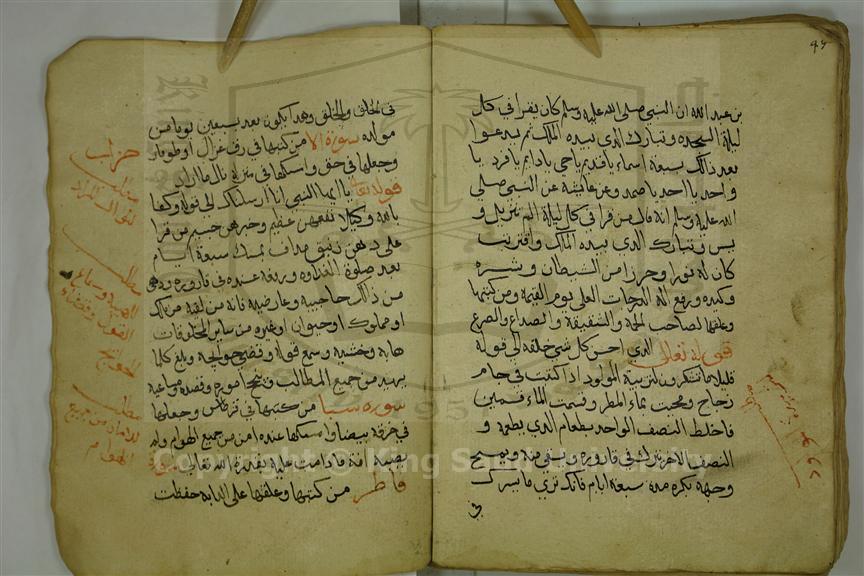 بن عبد الله ان النبي صلى الله عليه وسلم كان يقرا في كل
ليلة السجده وتبارك الذي بيده الملك ثم يدعوا
بعد ذالك بسبعة اسماء ياقديم ياحي يادايم يافرد يا
واحد يااحد ياصمد وعن عايشة عن النبي صلى
الله عليه وسلم انه قال من قرا في كل ليلة الم تنزيل و
يس وتبارك الذي بيده الملك واقتربت
كان له نور وحرز من الشيطان وشره
وكيده ورفع الله له الدرجات العلى يوم القيمة ومن كتبها
وعلقها لصاحب الحمى والشقيقة والصداع والصرع
قوله تعالى الذي احسن كل شي خلقه الى قوله
قليلا ما تشكرون لتربية المولود اذا كتبت في جام
زجاج ومحيت بماء المطر وقسمت الماء قسمين
فاخلط النصف الواحد بطعام الذي يطعمه و
النصف الاخر يترك في قاروره ويسقى منه ويمسح
وجهه بكرة مدة سبعة ايام فانك ترى ما يسرك
في الخلق والخلق وهذا يكون بعد سبعين يوما من
مولده سورة الا من كتبها في رق غزال او طومار
وجعلها في حق واسكها في منزله نال ما اراد
قوله تعالى يا ايها النبي انا ارسلناك الى قوله وكفا
بالله وكيلا نفعهن عظيم وخيرهن جسيم من قرا
على دهن زنبق مداف بمسك سبعة ايام
بعد صلوة الغداه ورفعه عنده في قاروره ودهن
من ذالك حاجبيه وعارضيه فانه من لقيه من ملك
او مملوك او حيوان او غيره من ساير المخلوقات
هابه وخشيه وسمع قوله وقضى حوايجه وبلغ كلما
يريد من جميع المطالب ونجح اموره وقصده ومساعيه
سورة سبا من كتبها في قرطاس وجعلها
في خرقة بيضا وامسكها عنده امن من جميع الهوام ولم
يصبه افة ما دامت عليه بقدرة الله تعالى سورة
فاطر من كتبها وعلقها على الدابه حفظت
مطلب
لنوال المراد
مطلب
الهيبه وسماع
القول وقضاء
الحوايج
مطلب
للامان من جميع
الهوام
Copyright © King Saud University